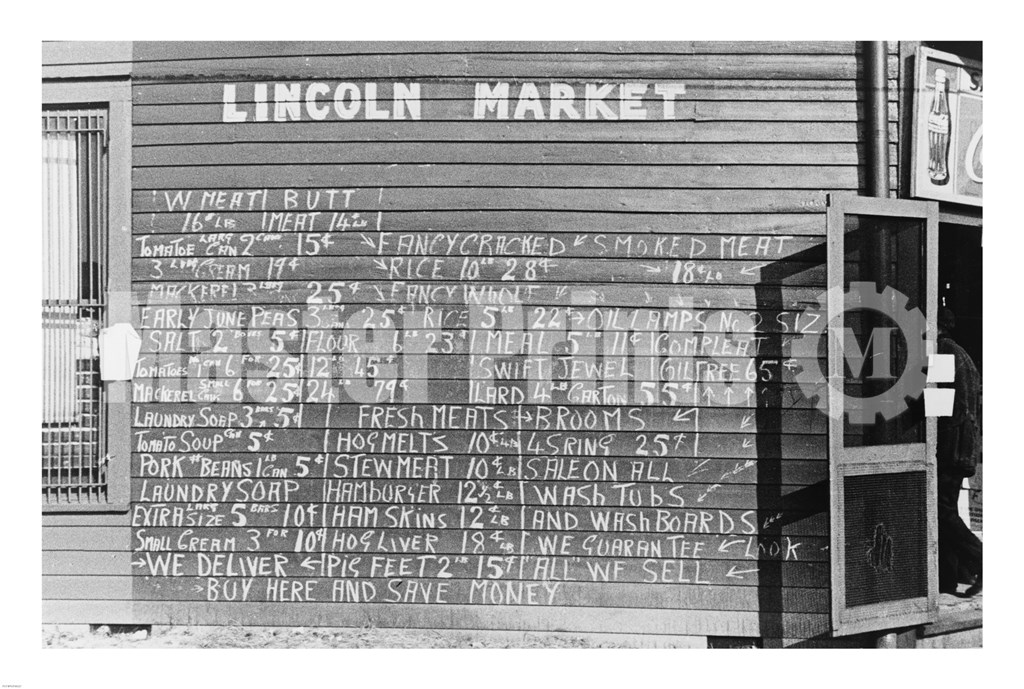 LINCOLN MARKET
W MEAT BUTT
16¢ LB MEAT 14¢ LB
TOMATOE LARG CAN 2 15¢ → FANCY CRACKED ← SMOKED MEAT
3 CREAM 19¢ RICE 10 LB 28¢ → 18¢ LB ←
MACKEREL 25¢ → FANCY WHOLE
EARLY JUNE PEAS 3 25¢ RICE 5 LB 22¢ → OIL LAMPS No 2 SIZ
SALT 2 BOXES 5¢ FLOUR 6 LB 23¢ MEAL 5 LB 11¢ COMPLEAT
TOMATOES No 1 CAN 6 FOR 25¢ 12 LB 45¢ SWIFT JEWEL OIL FREE 65¢
MACKEREL SMALL CANS 6 FOR 25¢ 24 LB 79¢ LARD 4 LB CARTON 55¢ ↑ ↑ ↑
LAUNDRY SOAP 3 BARS 5¢ FRESH MEATS → BROOMS ←
TOMATO SOUP CAN 5¢ HOG MELTS 10¢ LB 4 SRING 25¢
PORK & BEANS 1 LB CAN 5¢ STEW MEAT 10¢ LB SALE ON ALL
LAUNDRY SOAP HAMBURGER 12½¢ LB WASH TUBS ←
EXTRA LARG SIZE 5 BARS 10¢ HAM SKINS 12¢ LB AND WASH BOARDS
SMALL CREAM 3 FOR 10¢ HOG LIVER 18¢ LB WE GUARANTEE ← LOOK
→ WE DELIVER ← PIG FEET 2 LB 15¢ "ALL" WE SELL ←
→ BUY HERE AND SAVE MONEY
Master Prints
M